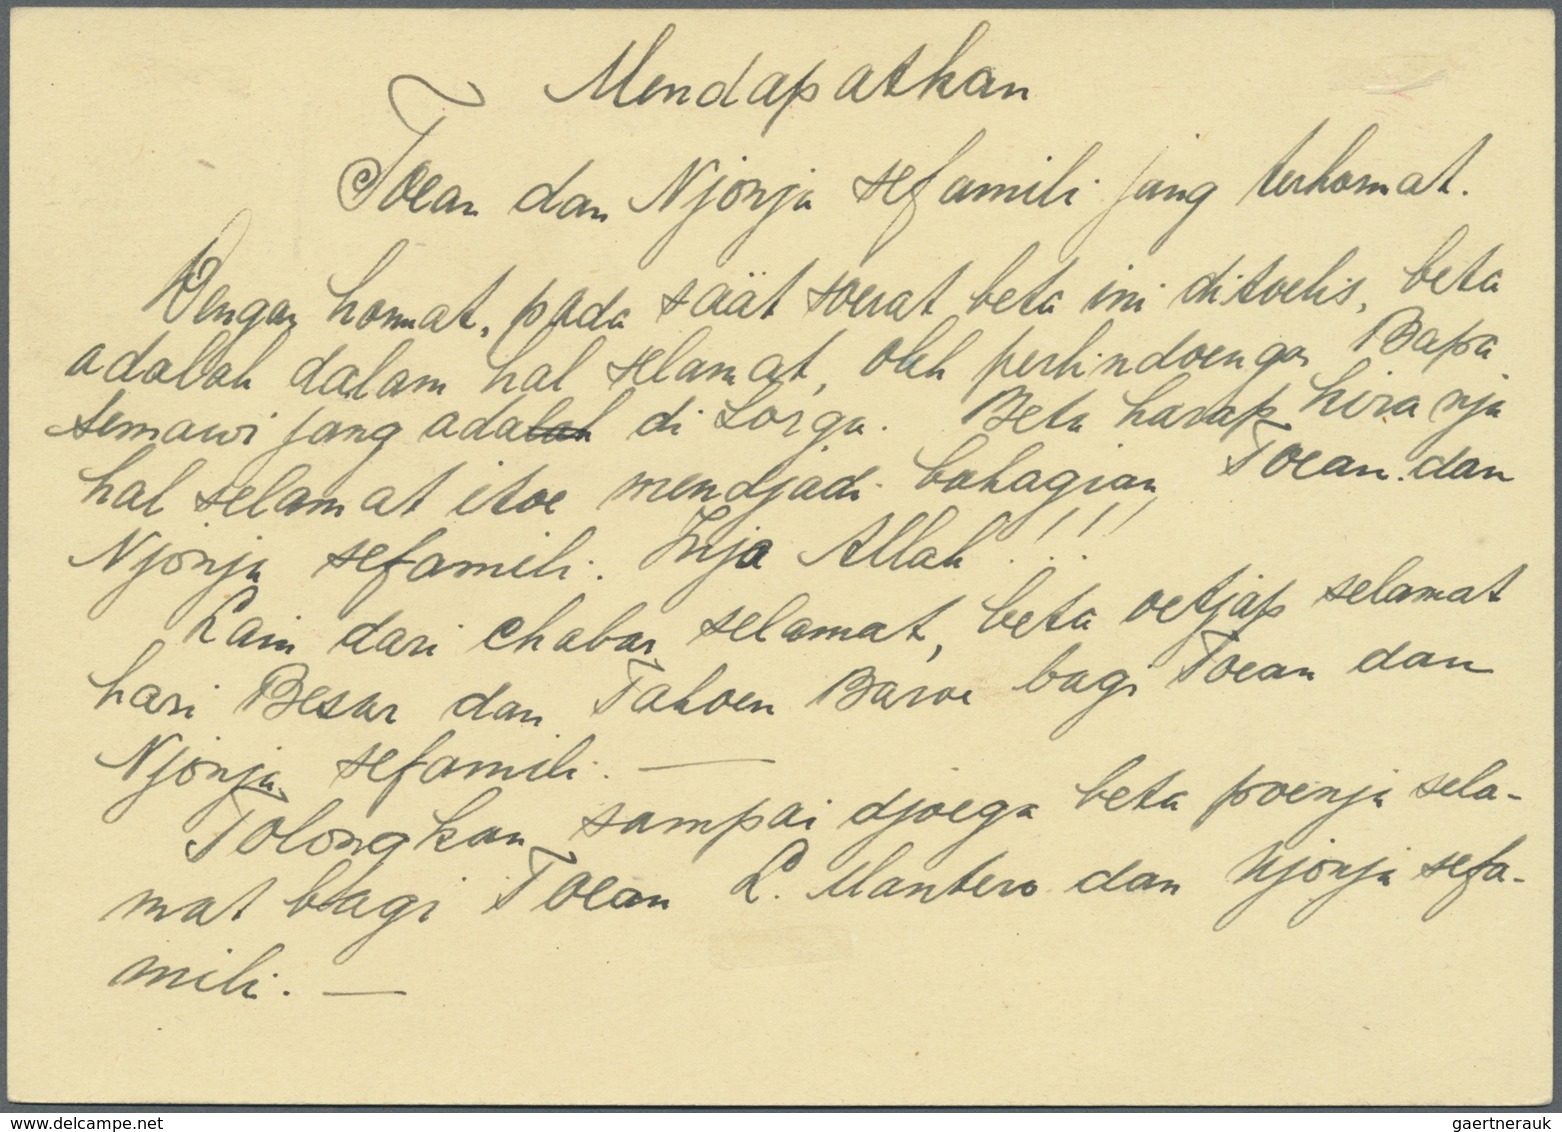 Mendapatkan
Toean dan Njonja sefamili jang terhormat.
Dengan hormat, pada säät soerat beta ini ditoelis, beta
adalah dalam hal selamat, oleh perlindoengan Bapa
semawi jang adalah di Sorga. Beta harap kiranja
hal selamat itoe mendjadi bahagian Toean dan
Njonja sefamili. Insja Allah !!!
Lain dari chabar selamat, beta oetjap selamat
hari Besar dan Tahoen Baroe bagi Toean dan
Njonja sefamili. —
Tolongkan sampai djoega beta poenja sela-
mat bagi Toean L. Mantero dan Njonja sefa-
mili. —
www.delcampe.net
gaertnerauk